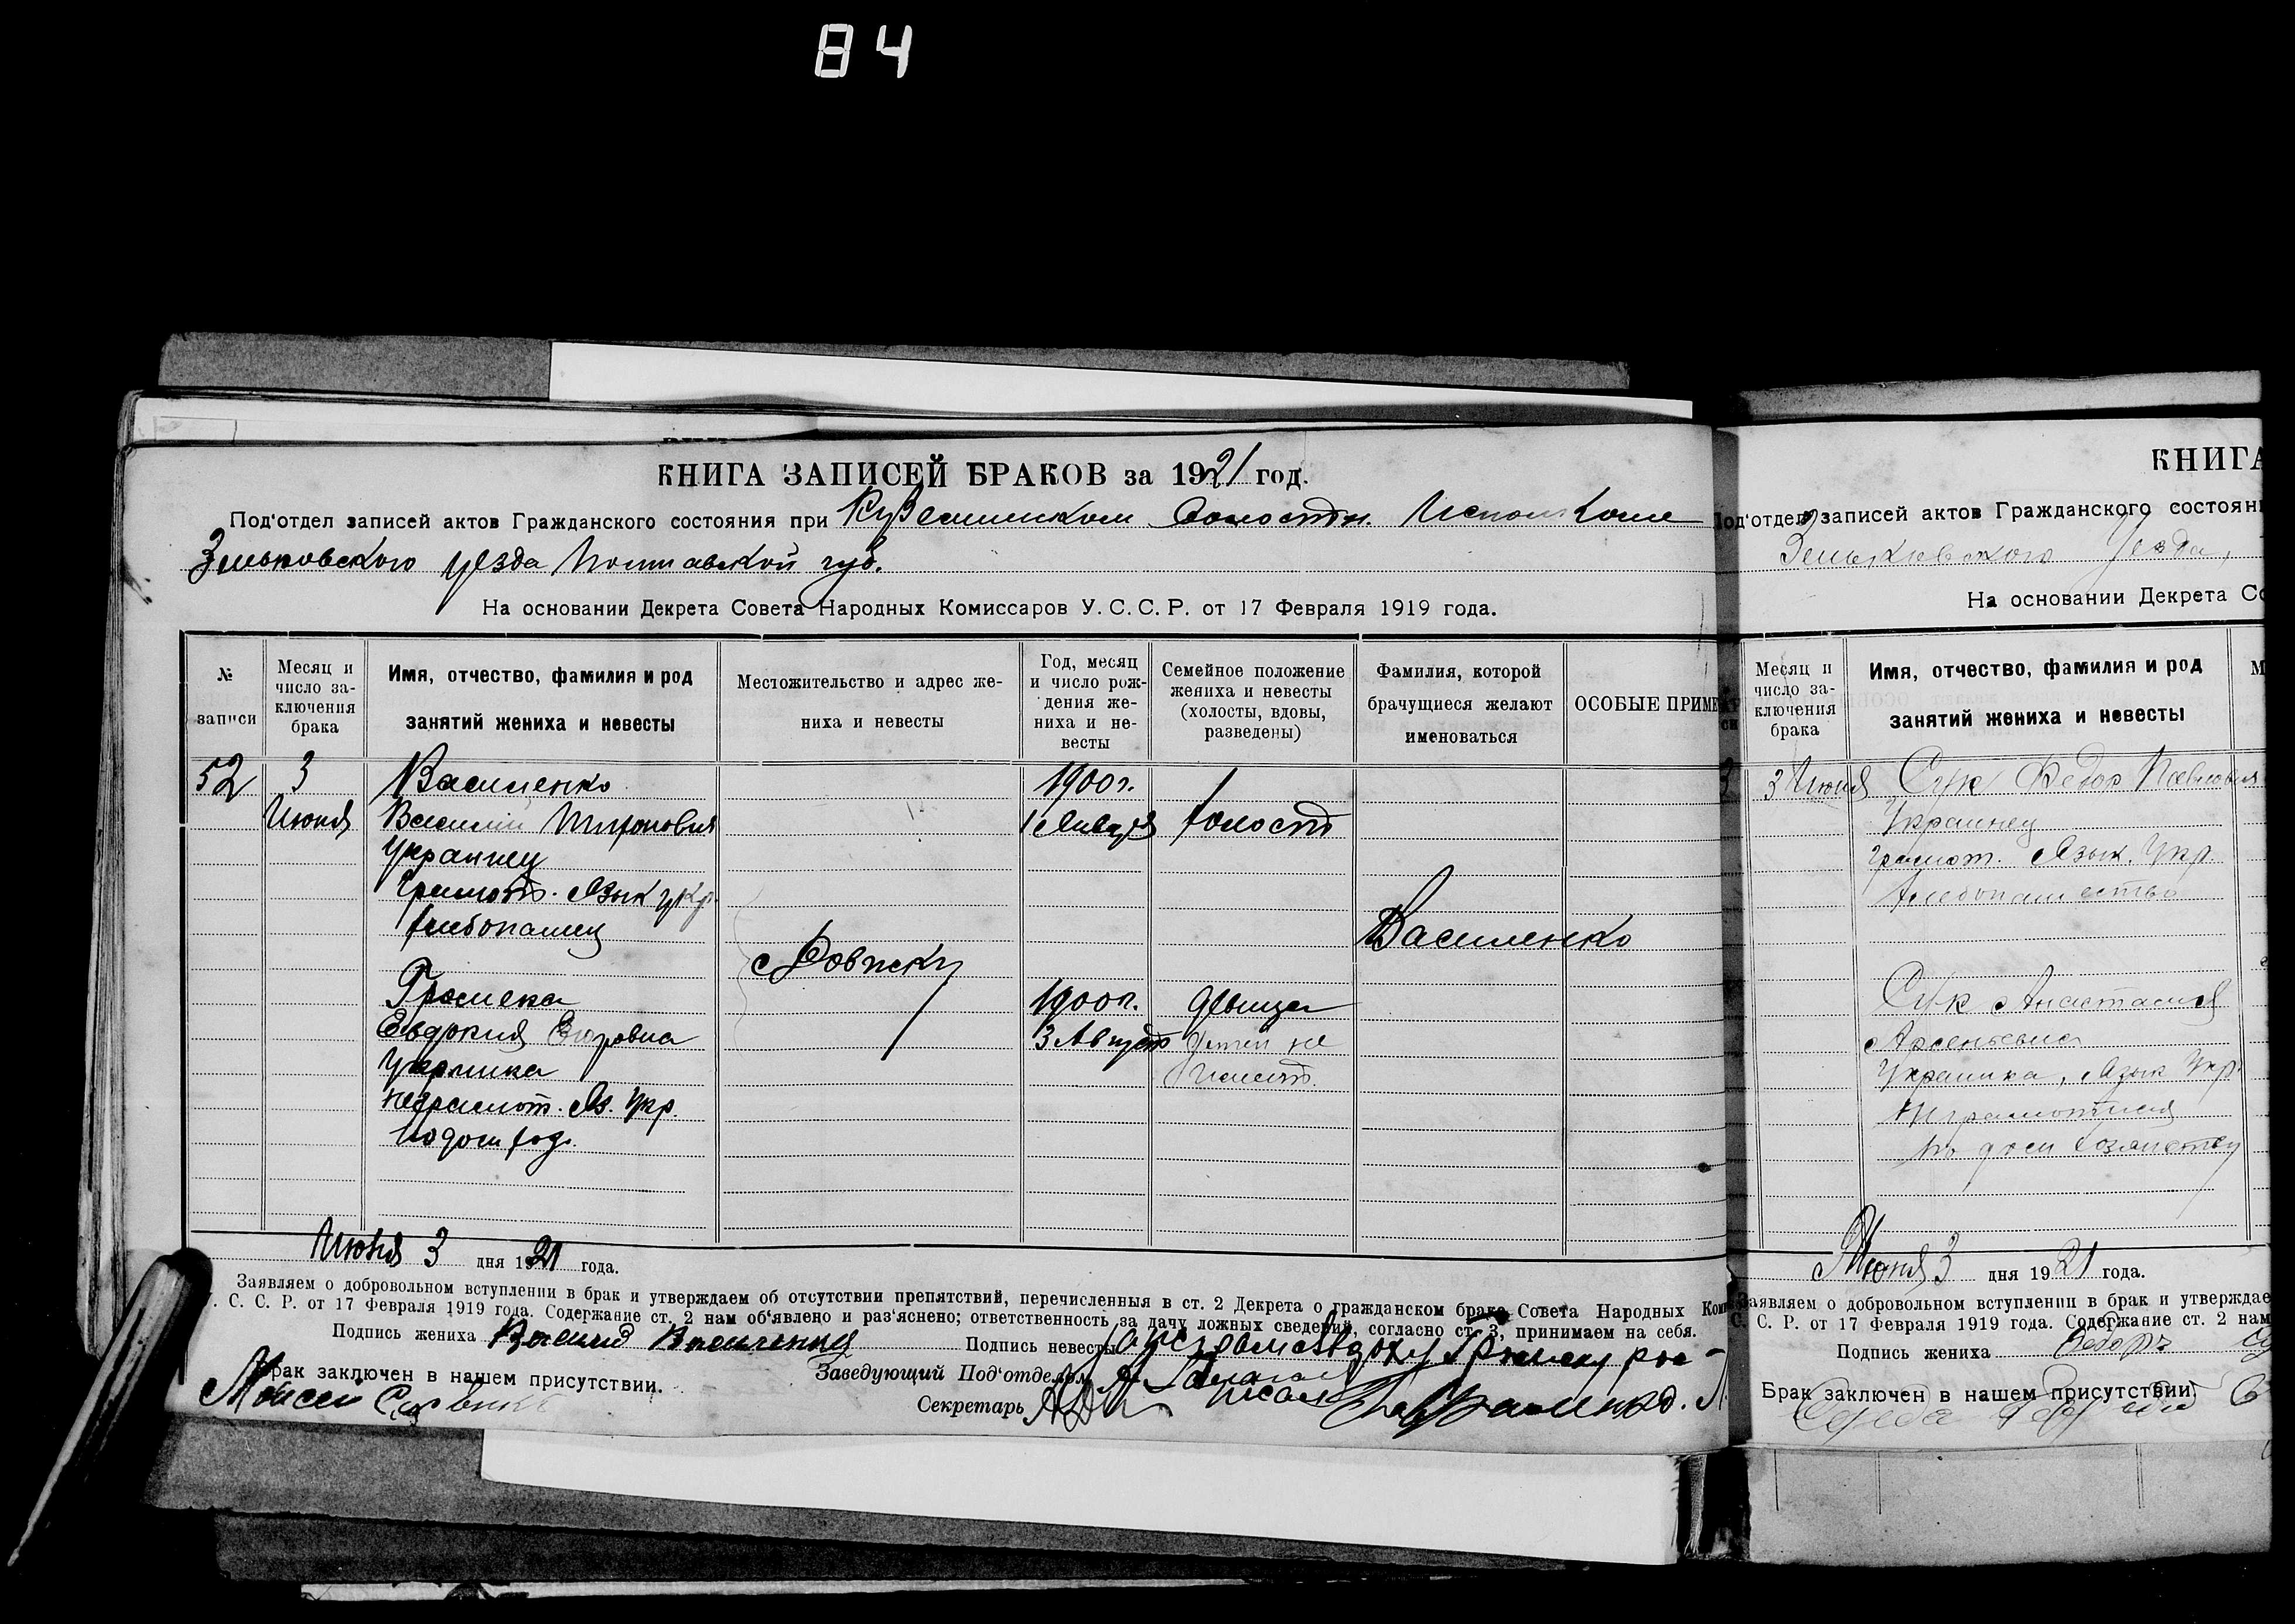 84
КНИГА ЗАПИСЕЙ БРАКОВ за 1921 год.
Под'отдел записей актов Гражданского состояния при Волостн. Исполкоме
Зеньковского уезда Полтавской губ.
На основании Декрета Совета Народных Комиссаров У. С. С. Р. от 17 Февраля 1919 года.
№ записи
Месяц и число за-
ключения брака
Имя, отчество, фамилия и род
занятий жениха и невесты
Местожительство и адрес же-
ниха и невесты
Год, месяц
и число рож-
дения же-
ниха и не-
весты
Семейное положение
жениха и невесты
(холосты, вдовы,
разведены)
Фамилия, которой
брачущиеся желают
именоваться
ОСОБЫЕ ПРИМЕ
52 3 Василенко 1900г.
Июня Василий Миронович 1 Января холост
Украинец
Грамотн. Язык укр.
хлебопашец
Василенко
Ловжску
Громека 1900г. девица
Евдокия Егоровна 3 Август детей не
Украинка имеет
неграмот. Яз. Укр.
по дом хоз.
Июня 3 дня 1921 года.
Заявляем о добровольном вступлении в брак и утверждаем об отсутствии препятствий, перечисленныя в ст. 2 Декрета о гражданском браке Совета Народных Ком
С. С. Р. от 17 Февраля 1919 года. Содержание ст. 2 нам об'явлено и раз'яснено; ответственность за дачу ложных сведений, согласно ст. 3, принимаем на себя.
Подпись жениха Василий Василенко Подпись невесты
Брак заключен в нашем присутствии. Заведующий Под'отделом
Моисей Секретарь
КНИГА
Под'отдел записей актов Гражданского состоян
Зеньковского Уезда,
На основании Декрета Со
Месяц и
число за-
ключения
брака
Имя, отчество, фамилия и род
занятий жениха и невесты
3 Июня Сук Федор Павлович
Украинец
грамот. Язык. Укр.
хлебопашество
Сук Анастасия
Арсеньевна
Украинка, Язык Укр.
Неграмотная
по дом хозяйству
Июня 3 дня 1921 года.
Заявляем о добровольном вступлении в брак и утверждае
С. С. Р. от 17 Февраля 1919 года. Содержание ст. 2 нам
Подпись жениха Федоръ
Брак заключен в нашем присутствии.